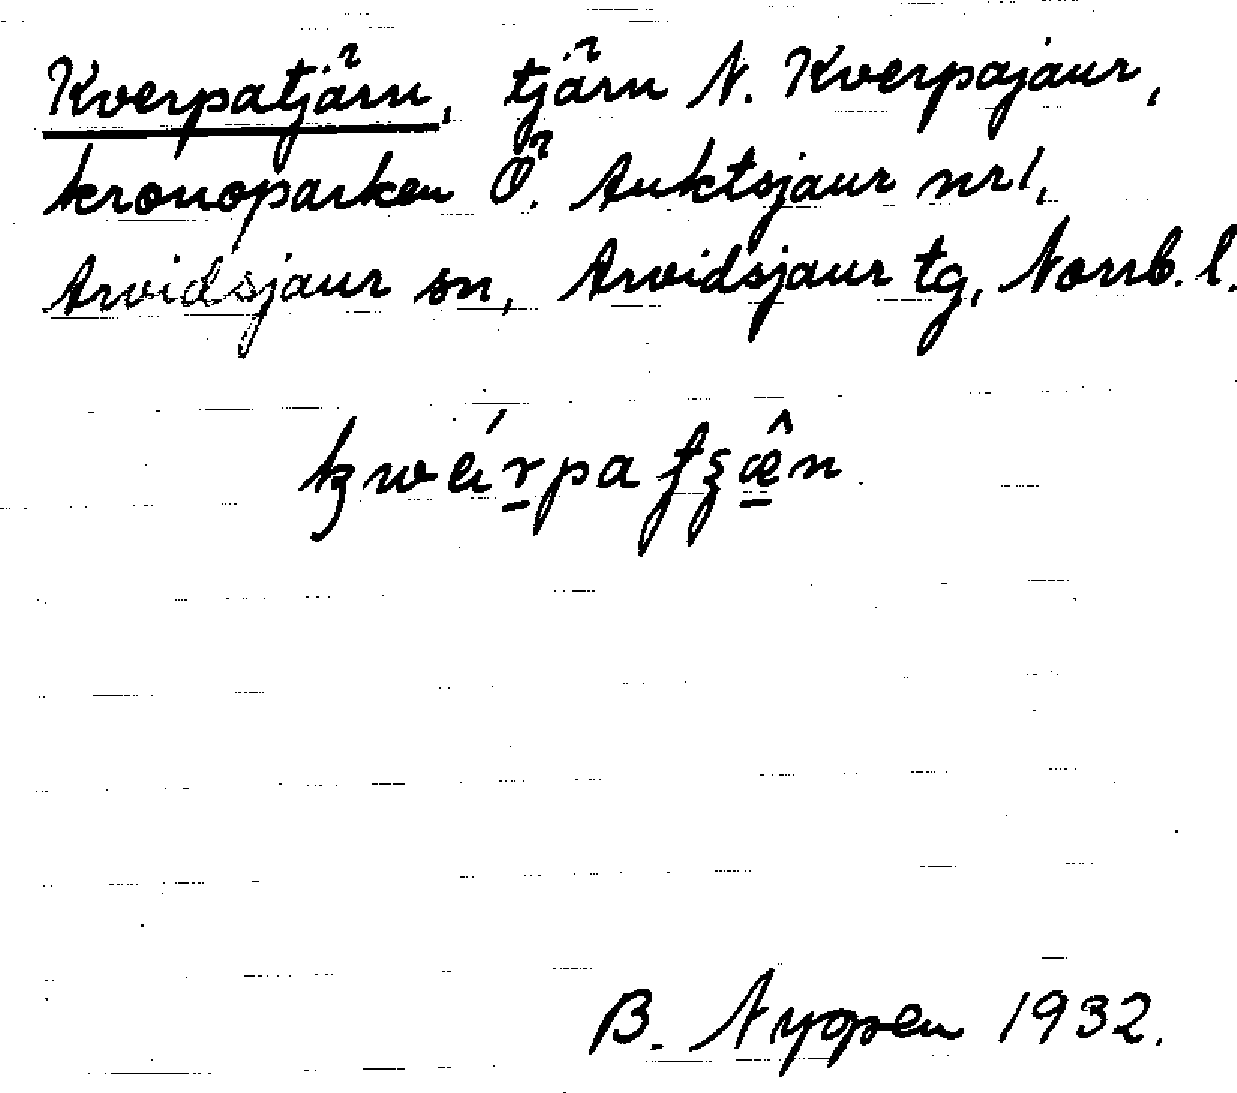 Kverpatjärn, tjärn N. Kverpajaur,
kronoparken Ö. Auktsjaur nr 1,
Arvidsjaur sn, Arvidsjaur tg, Norrb. l.
B. Nyopen 1932.